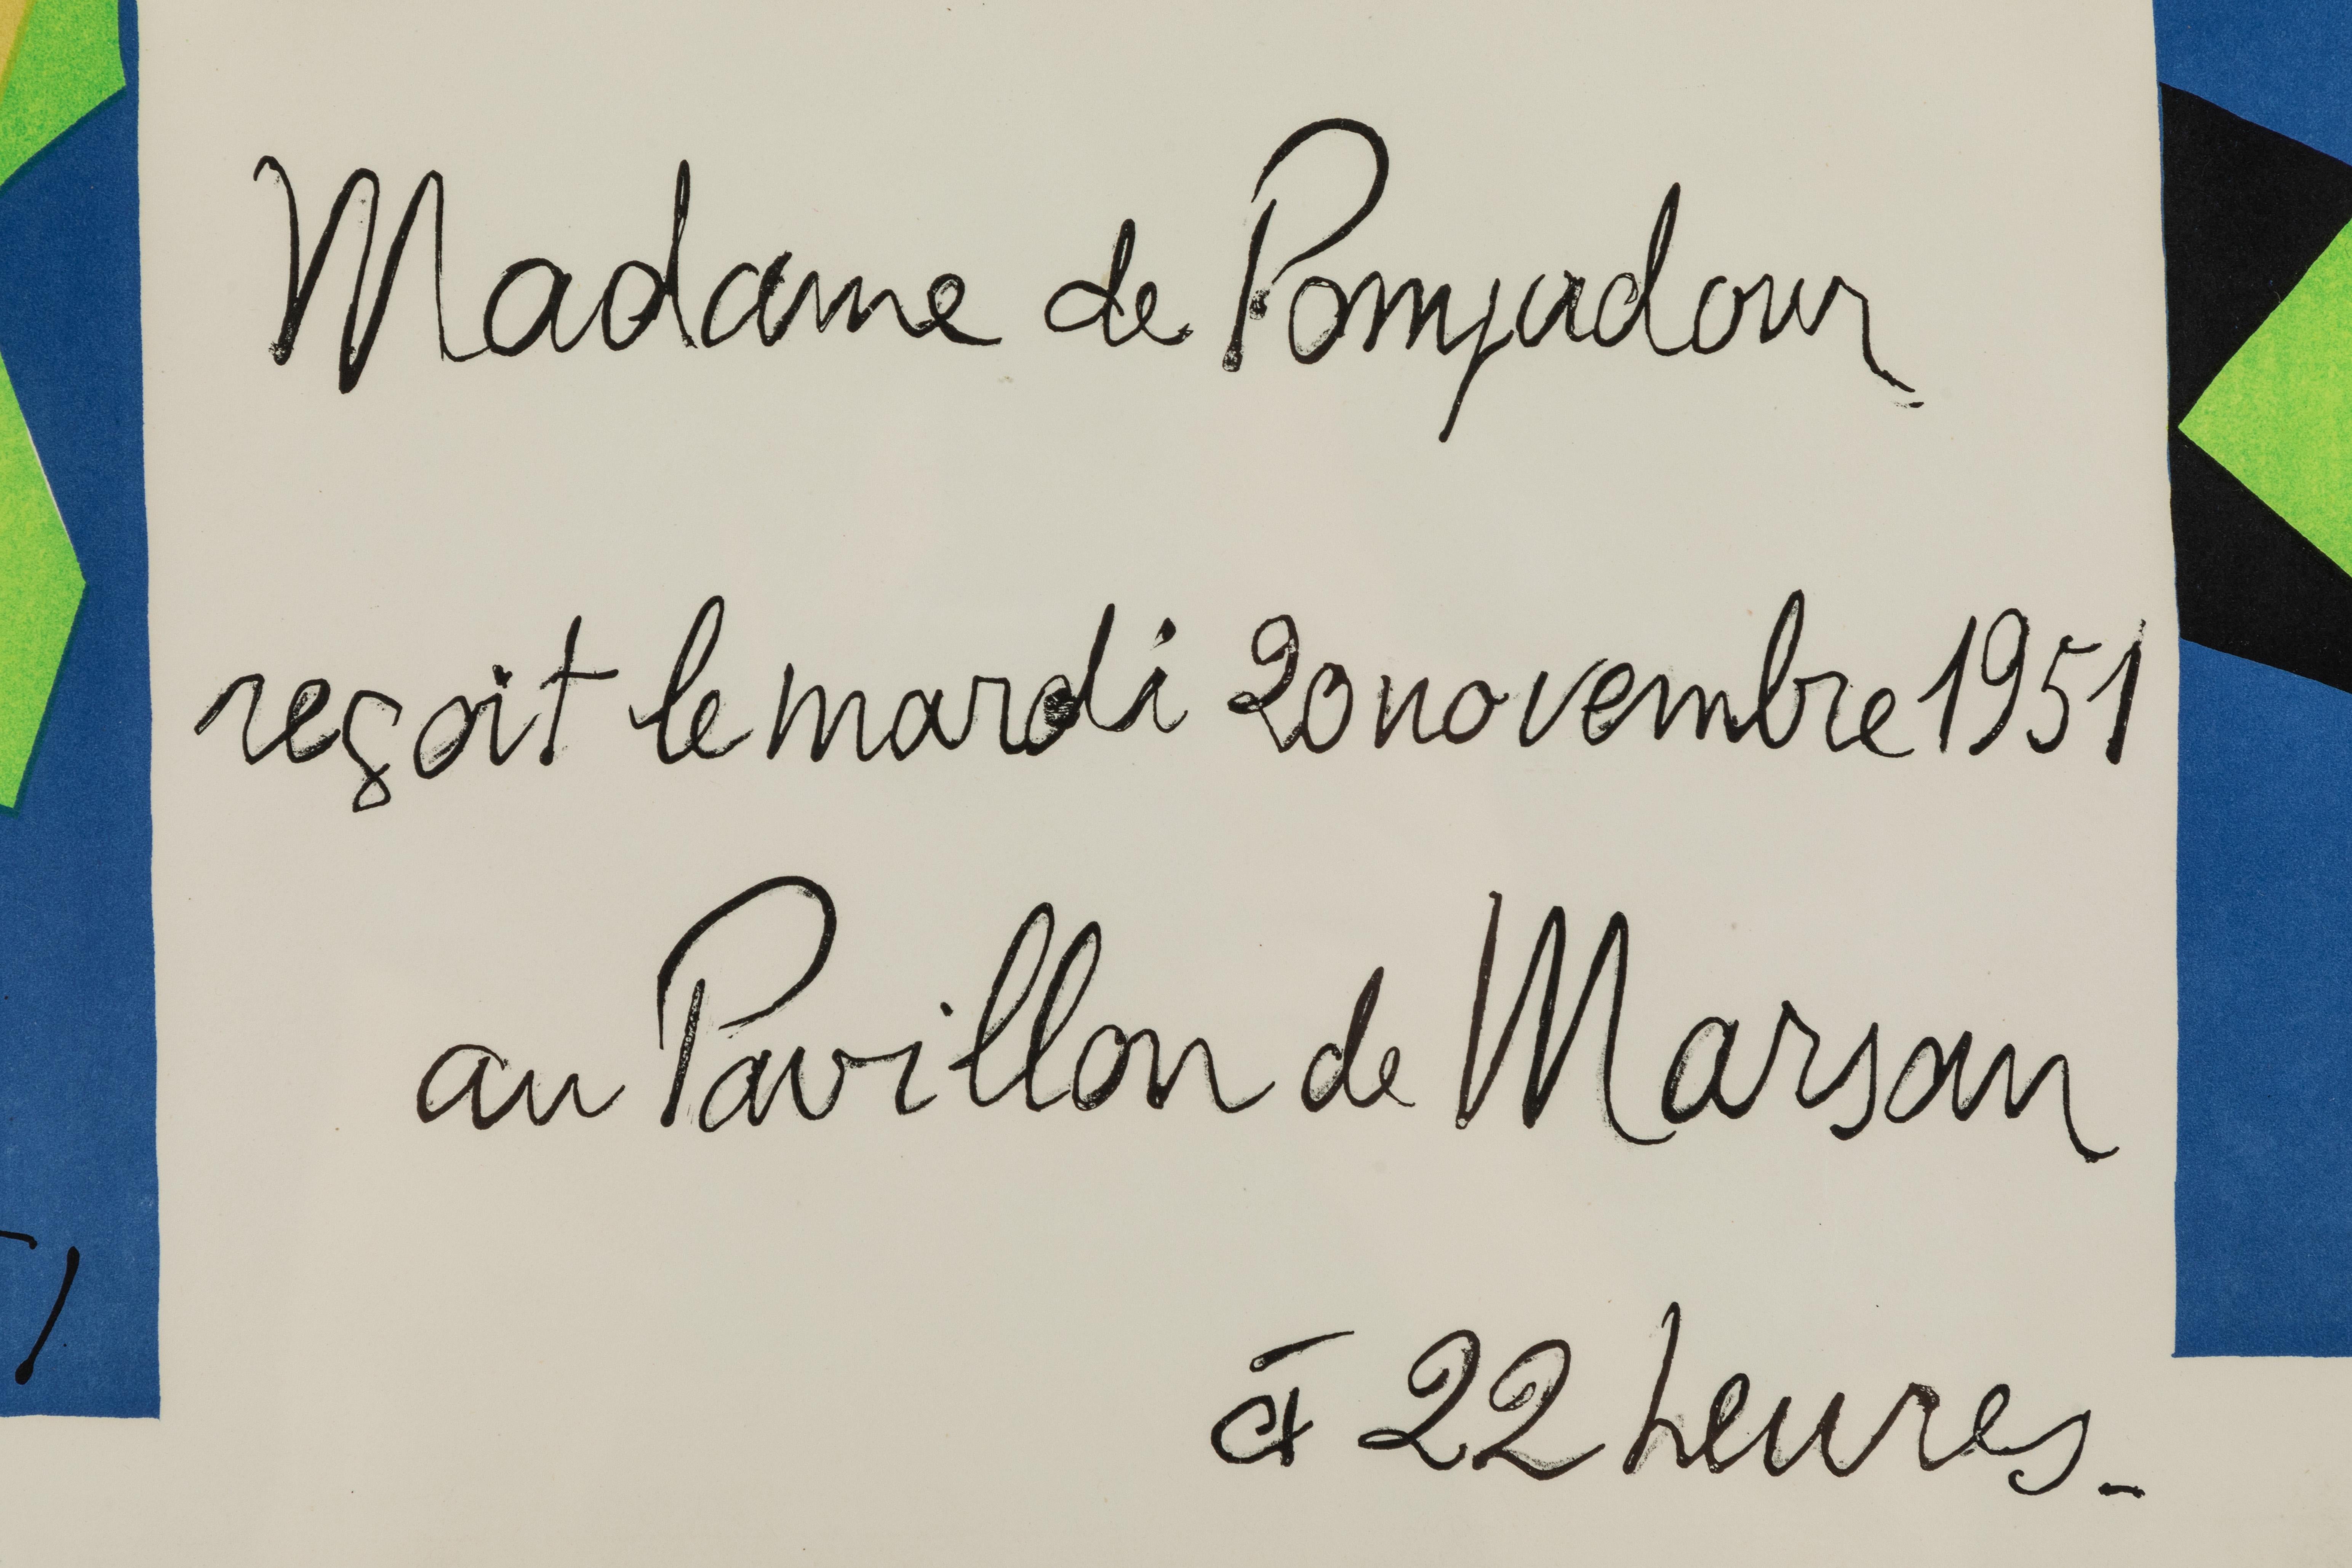 Madame de Pompadour
reçoit le mardi 20 novembre 1951
au Pavillon de Marsan
à 22 heures_